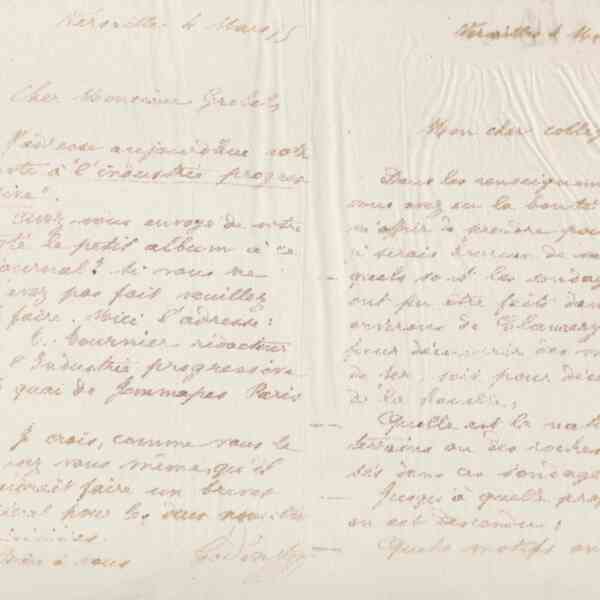 Versailles 4 Mars
Cher Monsieur
J'adresse aujourd'hui votre
note à l'industrie progres
sive.
Avez vous envoyé de votre
côté le petit album à ce
journal? Si vous ne
l'avez pas fait veuillez
faire. Voici l'adresse:
Tournier rédacteur
l'Industrie progressive
quai de Jemmapes Paris
Je crois, comme vous le
vous même, qu'il
faire un brevet
pour les deux
à vous
Versailles 4 Ma
Mon cher colleg
Dans les renseignem
vous avez eu la bonté
m'offrir de prendre pour
je serais heureux de
quels sont les sondag
ont pu être faits dan
environs de Clamecy
pour découvrir des m
de fer, soit pour déc
de la houille,
Quelle est la nat
terrains ou des roches
dans ces sondage
Jusqu'à quelle prof
on est descendu;
Quels motifs on